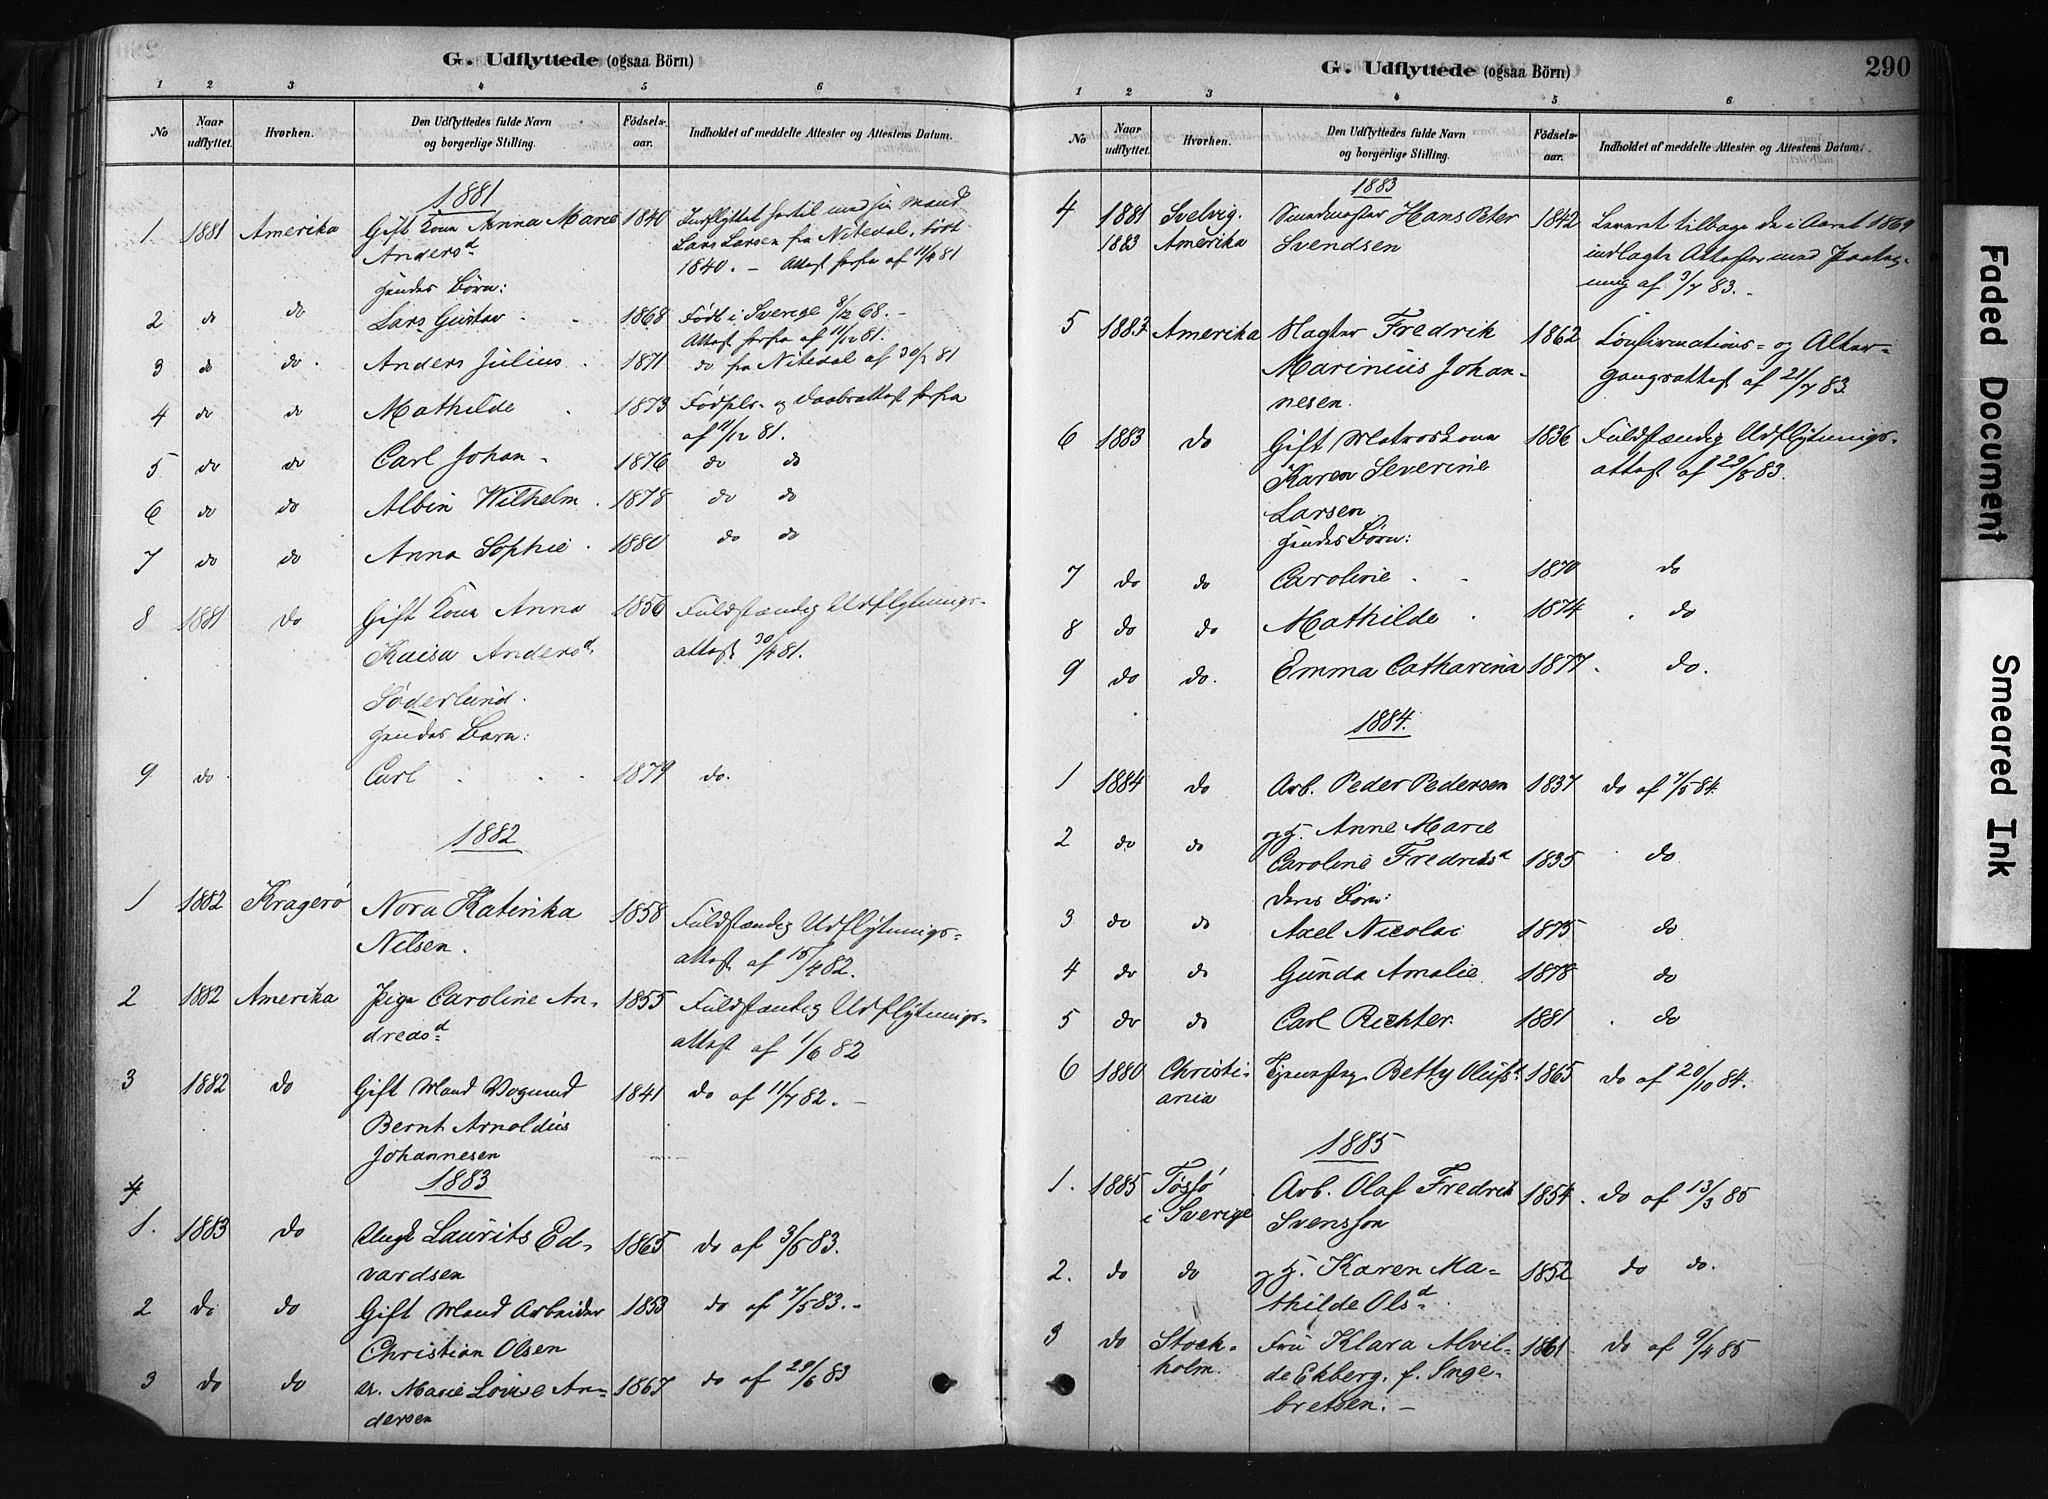 G. Udflyttede (ogsaa Börn)
1 2 3 4 5 6
No
Naar udflyttet.
Hvorhen.
Den Udflyttedes fulde Navn og borgerlige Stilling.
Födsels-aar.
Indholdet af meddelte Attester og Attestens Datum.
1881
1 1881 Amerika Gift Kone Anna Marie 1840 Indflyttet hertil med sin Mand
Andersd Lars Larsen fra Nitedal, født
1840. — Attest herfra af 11/4 81
hendes Børn:
2 do do Lars Gustav 1868 Født i Sverige 8/12 68. —
Attest herfra af 11/12 81.
3 do do. Anders Julius 1871 do fra Nitedal af 30/3 81
4 do do Mathilde 1873 Fødsels- og Daabsattest herfra
af 11/12 81.
5 do do Carl Johan 1876 do do
6 do do Albin Wilhelm 1878 do do
7 do do Anna Sophie 1880 do do
8 1881 do Gift Kone Anna 1856 Fuldstændig Udflytnings-
Kaisa Andersd. attest 30/4 81.
Söderlund.
hendes Barn:
9 do Carl 1879 do.
1882
1 1882 Kragerø Nora Katinka 1858 Fuldstændig Udflytnings-
Nilsen. attest af 15/4 82.
2 1882 Amerika Pige Caroline An- 1855 Fuldstændig Udflytnings-
dreasd attest af 1/6 82
3 1882 do Gift Mand Vognmd 1841 do af 11/7 82. —
Bernt Arnoldus
Johannesen
1883
4
1. 1883 do Ungk Laurits Ed- 1865 do af 3/5 83.
vardsen
2 do do Gift Mand Arbeider 1853 do af 7/5 83. —
Christian Olsen
3 do do Marie Lovise An- 1867 do af 29/6 83
dersen
G. Udflyttede (ogsaa Börn) 290
1 2 3 4 5 6
No
Naar udflyttet.
Hvorhen.
Den Udflyttedes fulde Navn og borgerlige Stilling.
Födsels-aar.
Indholdet af meddelte Attester og Attestens Datum.
1883
4 1881 Svelvig. Smedmester Hans Peter 1842 Leveret tilbage de i Aaret 1869
1883 Amerika Svendsen indlagte Attester med Paateg-
ning af 3/7 83. —
5 1883 Amerika Slagter Fredrik 1862 Confirmations- og Alter-
Marinius Johan- gangsattest af 21/7 83.
nesen.
6 1883 do Gift Matroskone 1836 Fuldstændig Udflytnings-
Karen Severine attest af 29/8 83.
Larsen
hendes Børn:
7 do do Caroline 1870 do
8 do do Mathilde 1874 do
9 do do. Emma Catharina 1877 do.
1884.
1 1884 do Arb. Peder Pedersen 1837 do af 7/5 84.
2 do do og H. Anne Marie
Caroline Fredriksd 1835 do
deres Børn:
3 do do Axel Nicolai 1875 do
4 do do Gunda Amalie 1878 do
5 do do Carl Richter. 1881 do
6 1880 Christi- Tjenestpg Betty Olufsd 1865 do af 20/10 84.
ania
1885
1. 1885 i Sverige Arb. Olaf Fredrik 1854. do af 13/3 85
Svensson
2. do do og H. Karen Ma- 1852 do do.
thilde Olsd.
3 do Stock- Fru Klara Alvil- 1861 do af 9/4 85
holm. de Ekberg, f. Inge-
bretsen. —
Faded Document
Smeared Ink